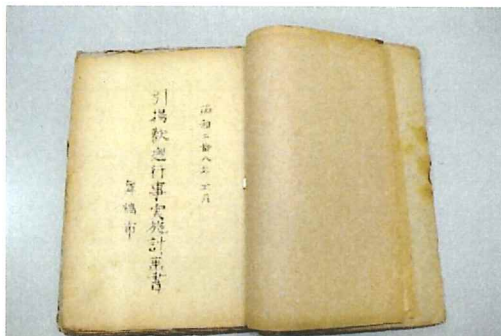 昭和二十八年 月
引揚歓迎行事実施計画書
舞鶴市